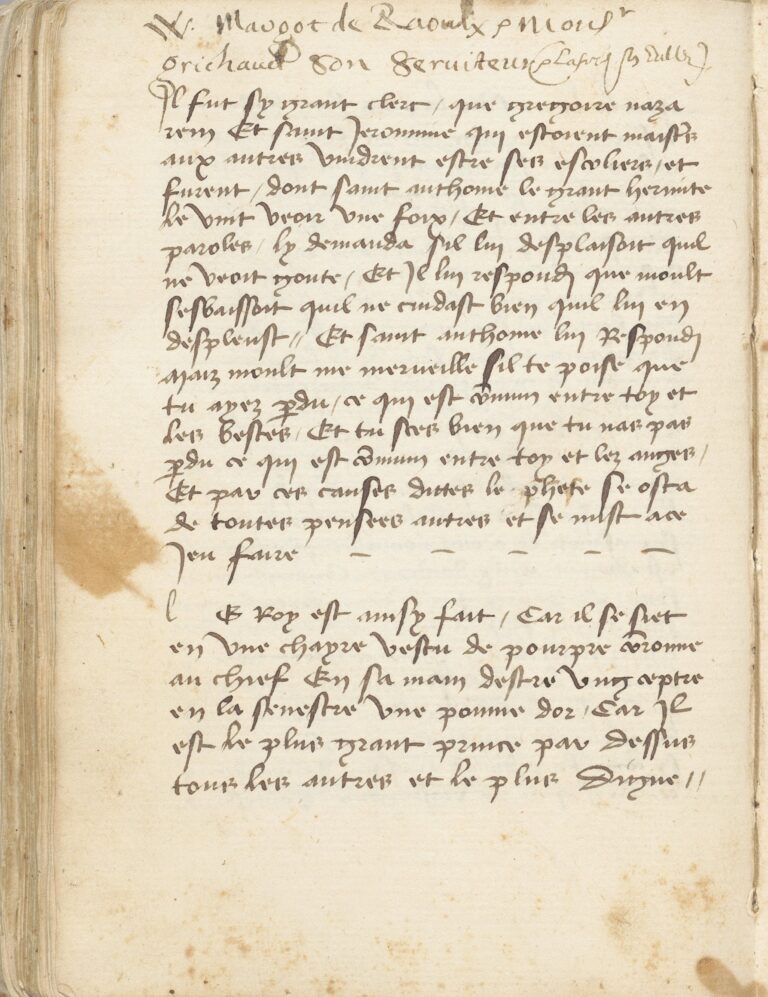 W. Margot de Raoulx p Monsr
grichault Son Serviteur
Il fut sy grant clerc / que gregoire naza
rem Et saint Jeromme qui estoient maistres
aux autres vindrent estre ses escoliers / et
furent / dont saint anthome le grant hermite
le vint veoir une foix / Et entre les autres
paroles / ly demanda sil lui desplaisoit quil
ne veoit goute / Et Il lui respondi que moult
sesbaissoit quil ne cuidast bien quil lui en
despleust // Et saint anthome lui Respondi
Maiz moult me merveille sil te poise que
tu ayez pdu / ce qui est comun entre toy et
les bestes / Et tu sces bien que tu nas pas
pdu ce qui est comun entre toy et lez anges /
Et par ces causes dittes le phete se osta
de toutes pensees autres et se mist a ce
Jeu faire
l E Roy est ainsy fait / Car il se siet
en une chayre vestu de pourpre coronne
au chief En sa main destre ung ceptre
en la senestre une pomme dor / Car Il
est le plus grant prince par dessus
tous les autres et le plus digne //